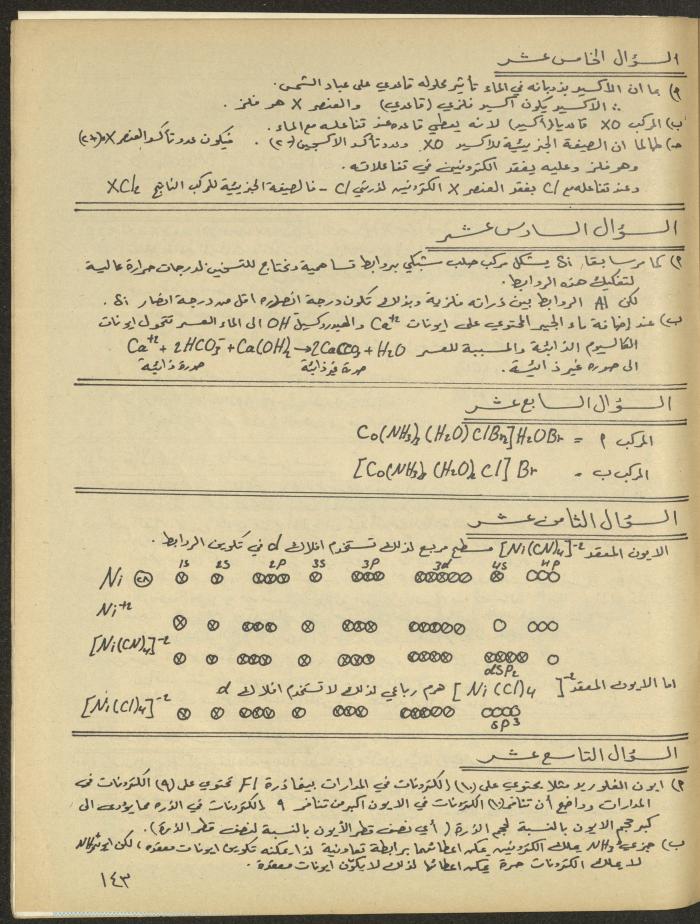 السؤال الخامس عشر
أ) بما ان الاكسيد بذوبانه في الماء تأثير محلوله قاعدي على عباد الشمس.
∴ الاكسيد يكون اكسيد فلزي (قاعدي) والعنصر X هو فلز.
ب) المركب XO قاعديا (أكسيد) لانه يعطي قاعده عند تفاعله مع الماء.
جـ) طالما ان الصيغة الجزيئية للاكسيد XO وعدد تأكسد الاكسجين (-٢). فيكون عدد تأكسد العنصر X هو (+٢)
وهو فلز وعليه يفقد الكترونين في تفاعلاته.
وعند تفاعله مع Cl يفقد العنصر X الكترونيه لذرتي Cl - فالصيغة الجزيئية للمركب الناتج XCl2
السؤال السادس عشر
أ) كما مر سابقا، Si يشكل مركب صلب شبكي بروابط تساهمية ويحتاج للتسخين لدرجات حرارة عالية
لتفكيك هذه الروابط.
لكن Al الروابط بين ذراته فلزية وبذلك تكون درجة انصهاره اقل من درجة انصهار Si.
ب) عند اضافة ماء الجير المحتوي على ايونات Ca+2 والهيدروكسيل OH الى الماء العسر تتحول ايونات
الكالسيوم الذائبة والمسببة للعسر Ca+2 + 2HCO3- + Ca(OH)2 → 2CaCO3 + H2O
الى صوره غير ذائبة. صورة غير ذائبة صورة ذائبة
السؤال السابع عشر
المركب أ = Co(NH3)2 (H2O) ClBr2] H2OBr
المركب ب = [Co(NH3)2 (H2O)2 Cl] Br
السؤال الثامن عشر
الايون المعقد [Ni(CN)4]-2 مسطح مربع لذلك تستخدم افلاك d في تكوين الروابط.
1S 2S 2P 3S 3P 3d 4S 4P
Ni
Ni+2
[Ni(CN)4]-2
dSP2
اما الايون المعقد [Ni(Cl)4]-2 هرم رباعي لذلك لا تستخدم افلاك d
[Ni(Cl)4]-2
SP3
السؤال التاسع عشر
أ) ايون الفلوريد مثلا يحتوي على (١٠) الكترونات في المدارات بينما ذرة F تحتوي على (٩) الكترونات في
المدارات وواضح أن تنافر (١٠) الكترونات في الايون اكبر من تنافر ٩ الكترونات في الذره مما يؤدي الى
كبر حجم الايون بالنسبة لحجم الذرة (أي نصف قطر الأيون بالنسبة لنصف قطر الذرة).
ب) جزيء NH3 يملك الكترونين يمكن اعطائهما برابطة تعاونية لذا يمكنه تكوين ايونات معقده، لكن ايون NH4+
لا يملك الكترونات حرة يمكن اعطائها لذلك لا يكوّن ايونات معقدة.
١٤٣